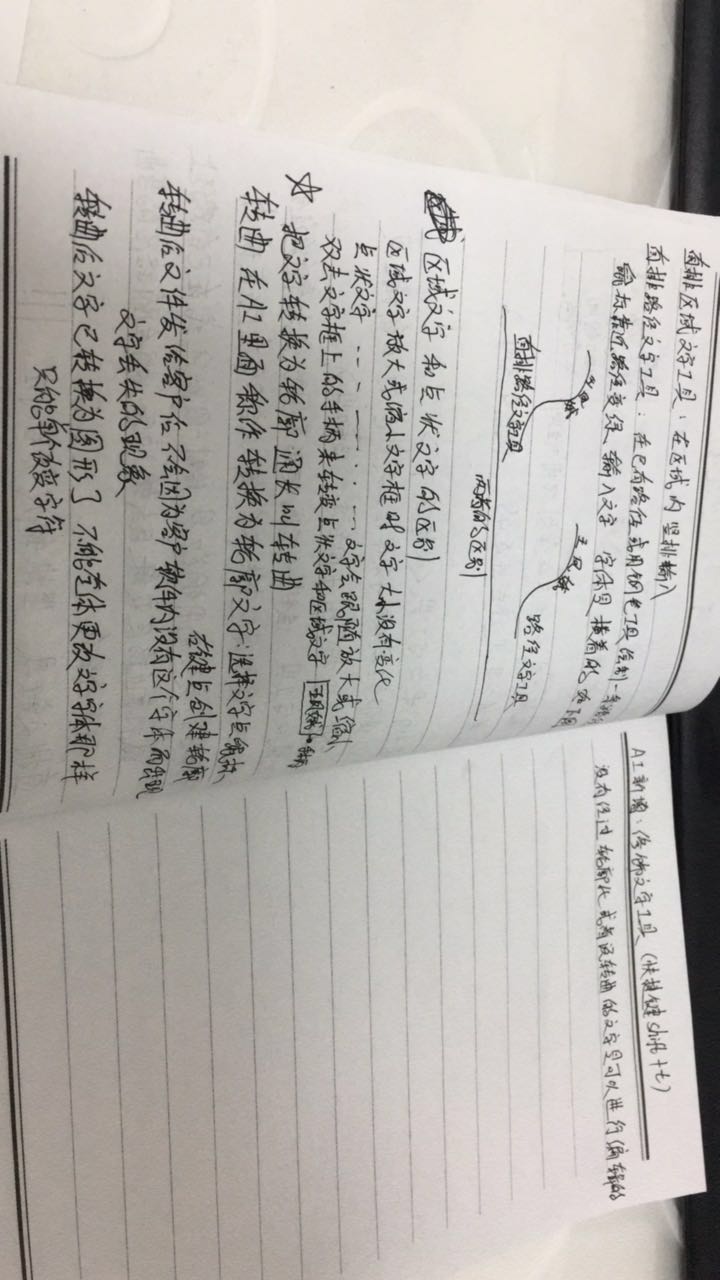 直排区域文字工具：在区域内竖排输入
直排路径文字工具：在已有路径或用钢笔工具绘制一条路径
鼠标靠近路径变绿 输入文字 字体是横着的
直排路径文字工具
路径文字工具
两者的区别
区域文字和点状文字的区别
区域文字放大或缩小文字框时文字大小没有变化
点状文字 -- - — — · · · — 文字会跟随放大或缩小
双击文字框上的手柄来转变点状文字和区域文字
☆ 把文字转换为轮廓 通长叫转曲
转曲 在AI里面称作转换为轮廓文字：选择文字点鼠标
右键点创建轮廓
转曲后文件发给客户后 不会因为客户软件内没有这个字体而出现
文字丢失的现象
转曲后文字已转换为图形了 不能在更改文字字体那样
只能单改变字符
AI新增：修饰文字工具（快捷键shift+t）
没有经过轮廓化或者没转曲的文字是可以进行编辑的